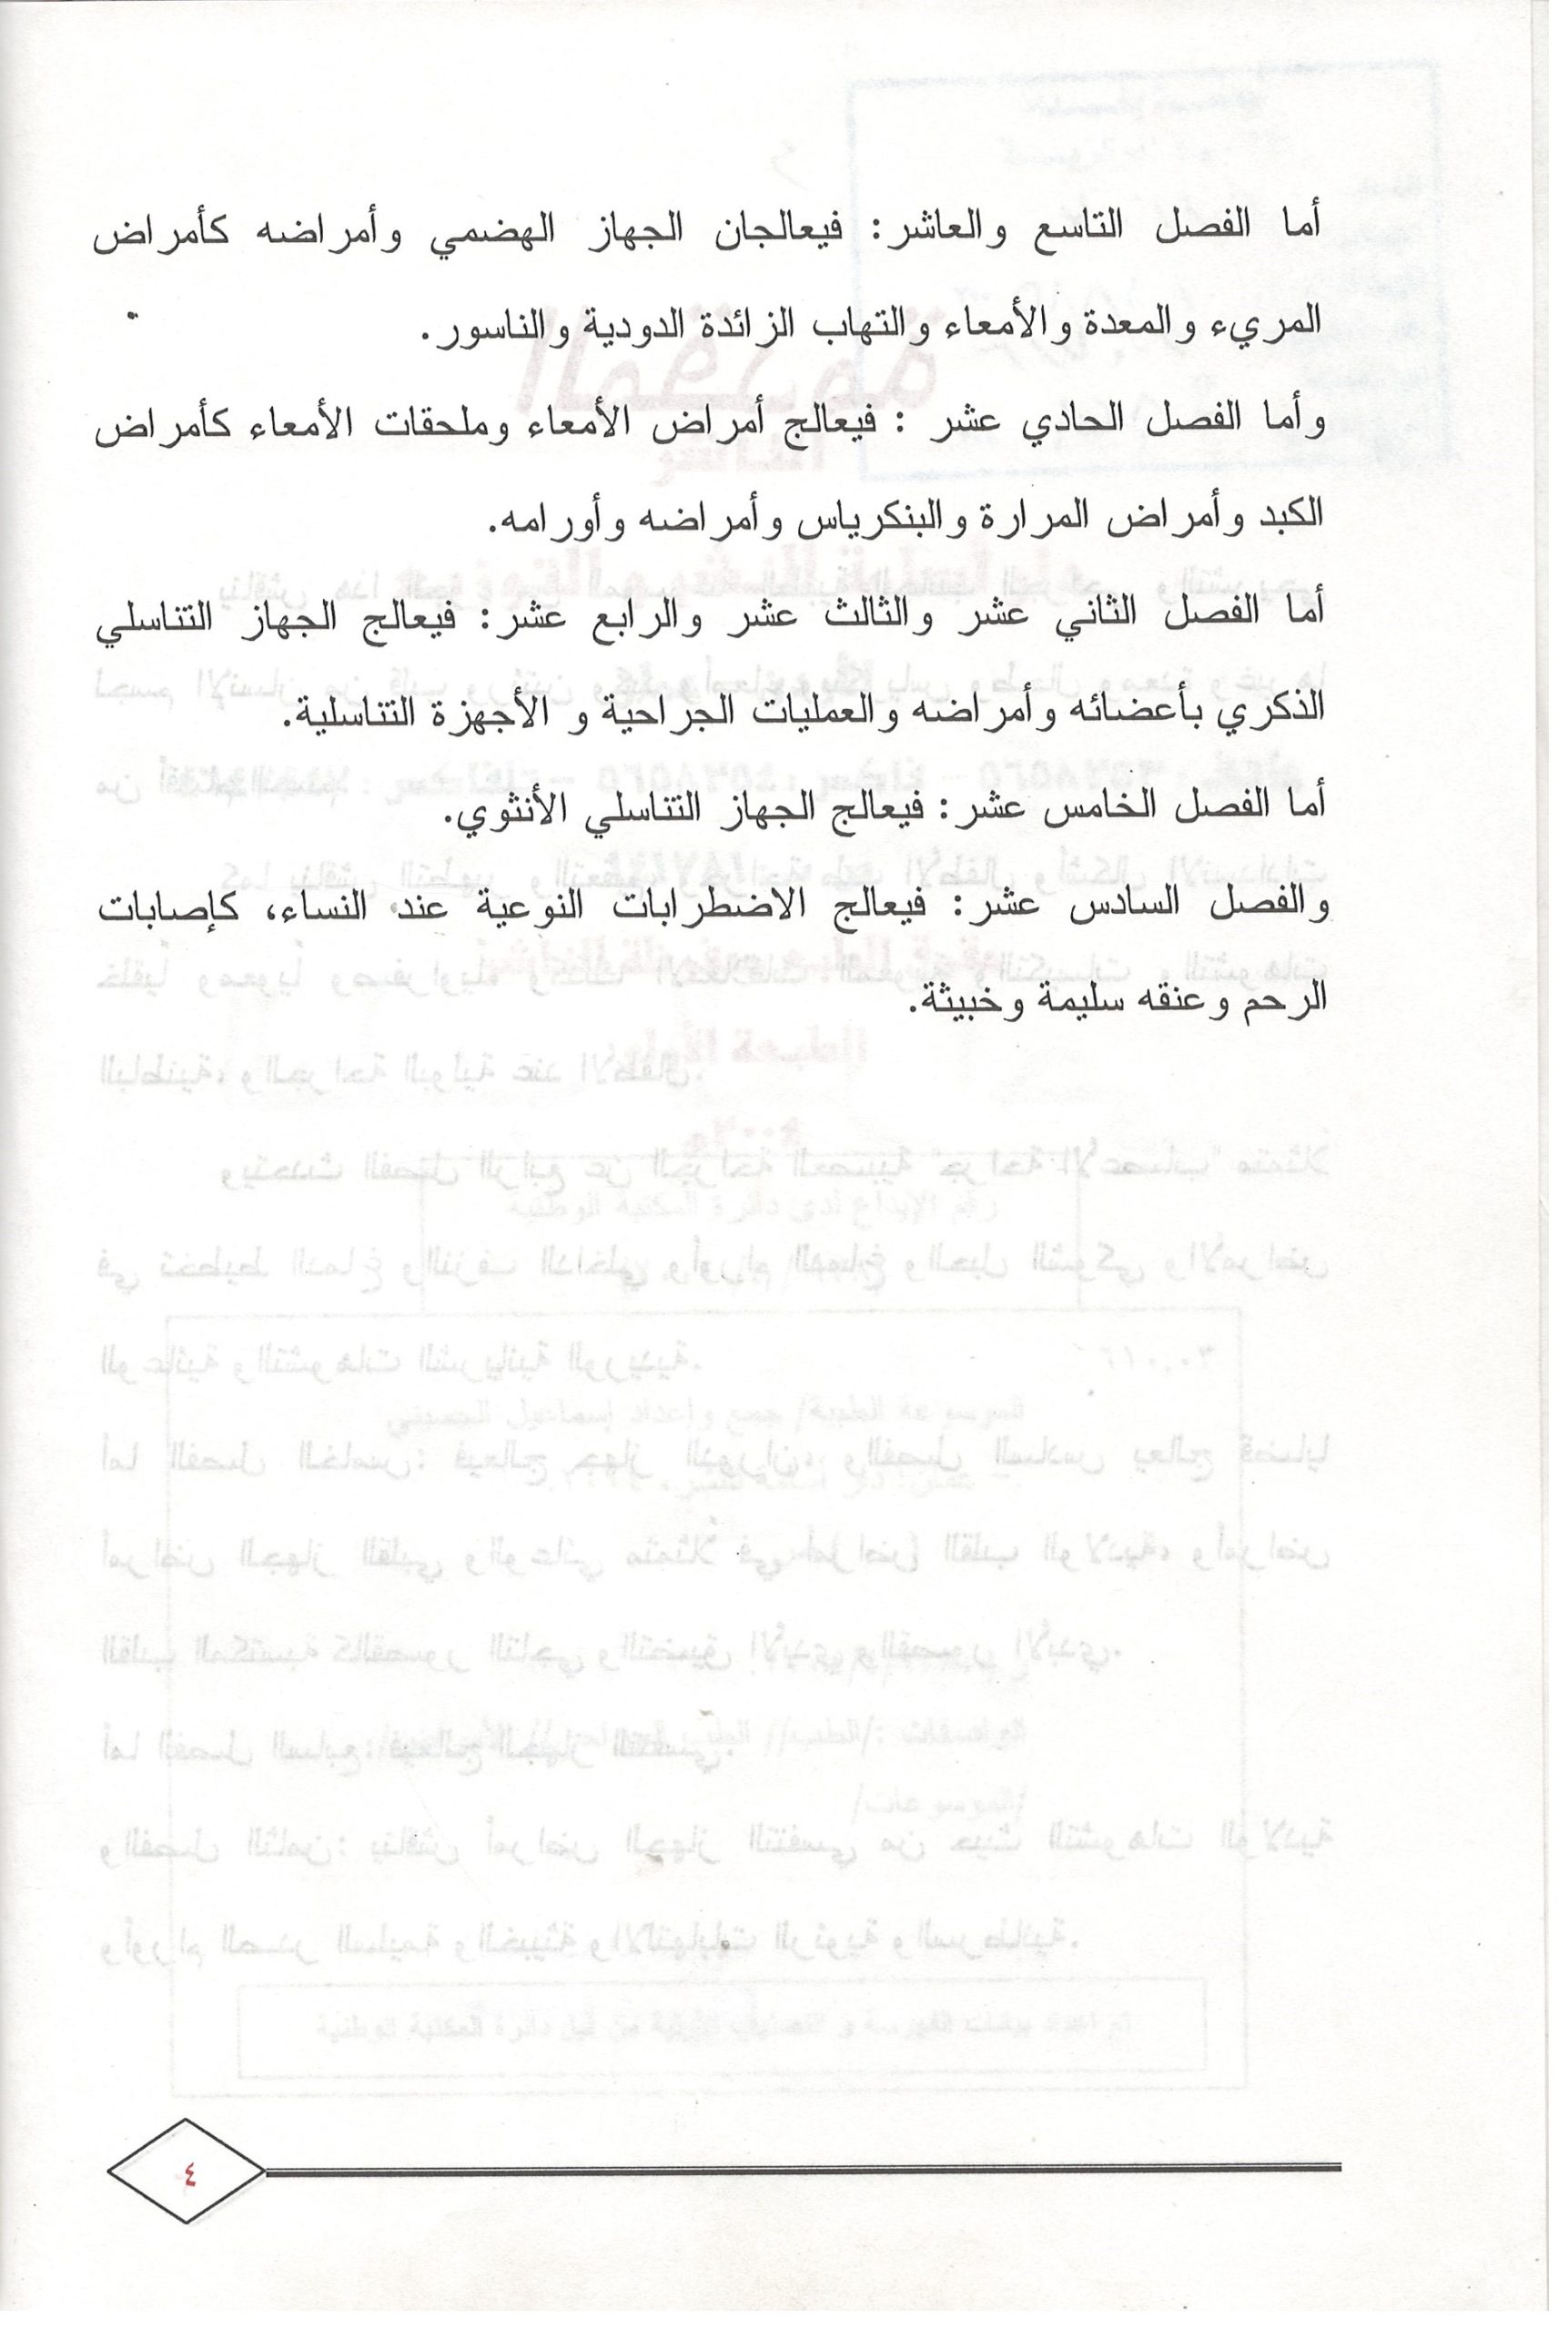 أما الفصل التاسع والعاشر: فيعالجان الجهاز الهضمي وأمراضه كأمراض
المريء والمعدة والأمعاء والتهاب الزائدة الدودية والناسور.
وأما الفصل الحادي عشر : فيعالج أمراض الأمعاء وملحقات الأمعاء كأمراض
الكبد وأمراض المرارة والبنكرياس وأمراضه وأورامه.
أما الفصل الثاني عشر والثالث عشر والرابع عشر: فيعالج الجهاز التناسلي
الذكري بأعضائه وأمراضه والعمليات الجراحية و الأجهزة التناسلية.
أما الفصل الخامس عشر: فيعالج الجهاز التناسلي الأنثوي.
والفصل السادس عشر: فيعالج الاضطرابات النوعية عند النساء، كإصابات
الرحم وعنقه سليمة وخبيثة.
٤